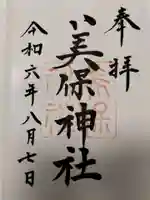 奉拝
美保神社
令和六年八月七日